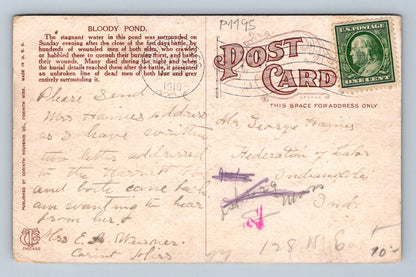 BLOODY POND.
The stagnant water in this pond was surrounded on
Sunday evening after the close of the first days battle, by
hundreds of wounded men of both sides, who crawled
or hobbled there to cornch their burning thirst, and bathe
their wounds. Many died during the night and when
the burial details reached them after the battle, it presented
an unbroken line of dead men of both blue and grey
entirely surrounding it.
MADE IN U.S.A.
PUBLISHED BY CORINTH SOUVENIR CO., CORINTH MISS.
CHICAGO
P1195
POST CARD
THIS SPACE FOR ADDRESS ONLY
U.S. POSTAGE
ONE CENT
1910
Please Send
Mrs Haines address
as I have written
two letter addressed
to the
and both came back
am wanting to hear
from her
Mrs E. A.
Corint Miss
Mr George Haines
Federation of Labor
Indianapolis
Ind
128 N. East
10-